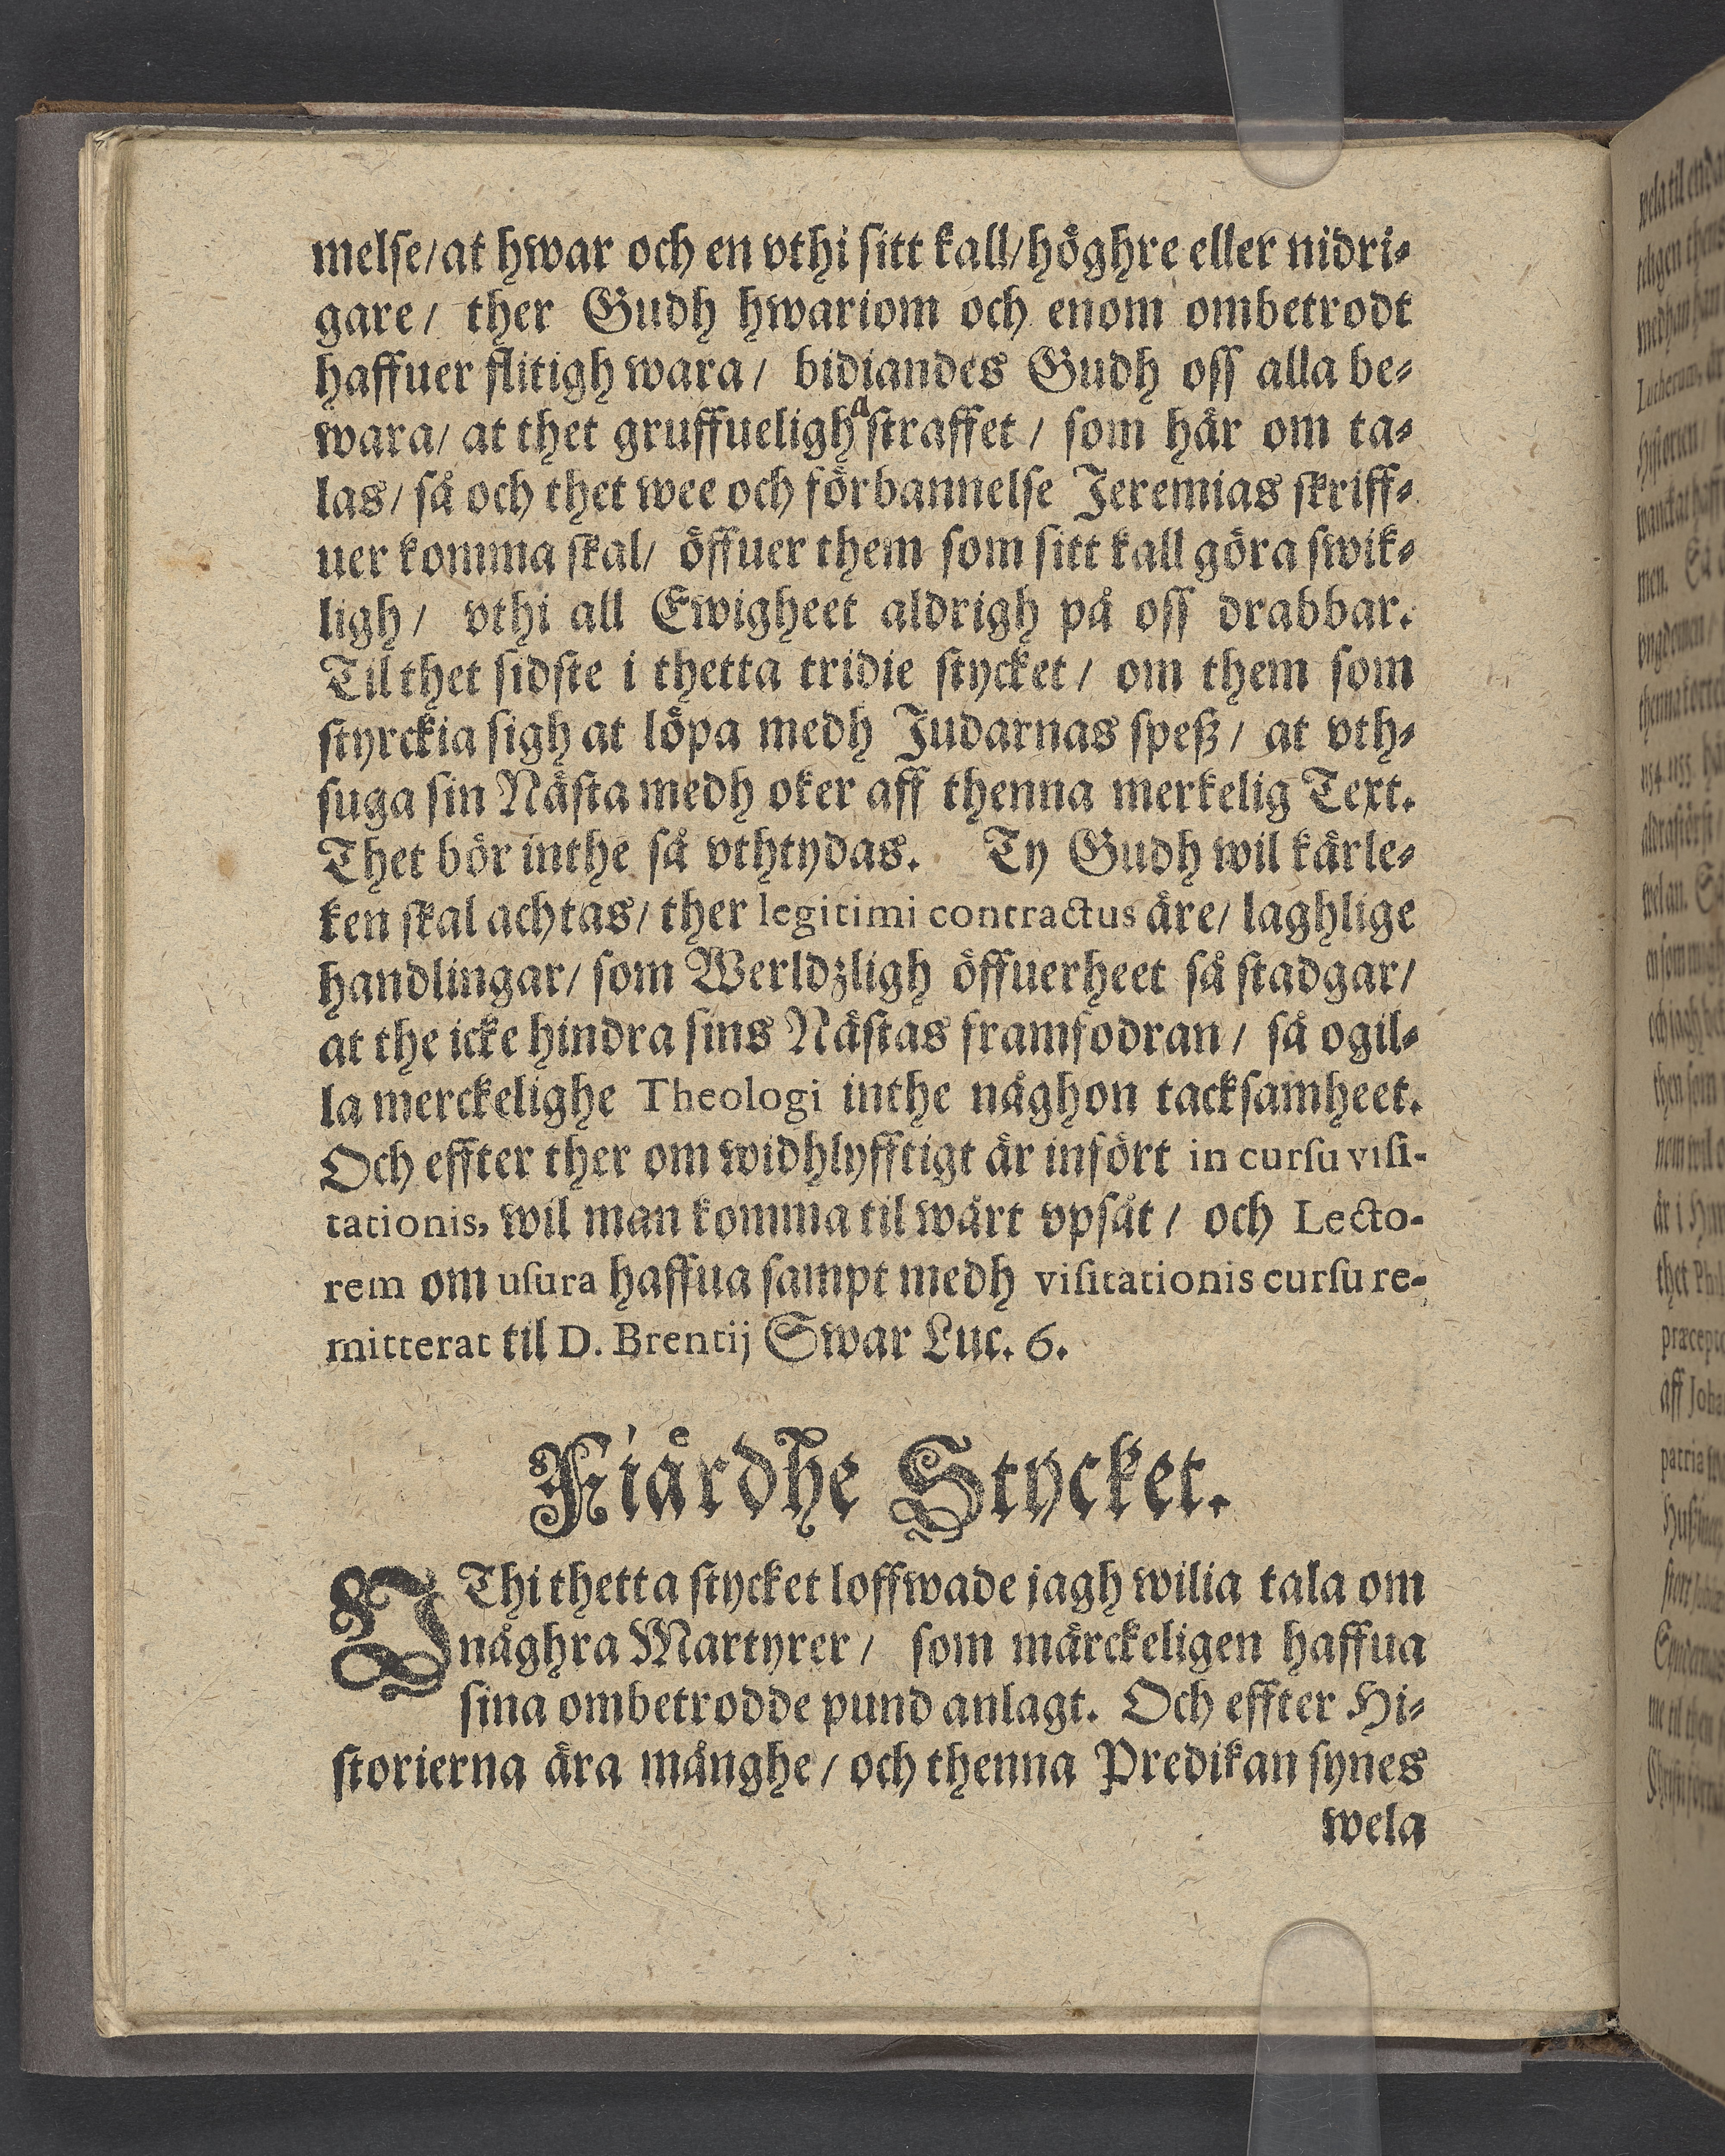 melse/at hwar och en vthi sitt kall/höghre eller nidri-
gare/ ther Gudh hwariom och enom ombetrodt
haffuer flitigh wara/ bidiandes Gudh oss alla be-
wara/ at thet gruffueligha straffet/ som här om ta-
las/ så och thet wee och förbannelse Jeremias skriff-
uer komma skal/ öffuer them som sitt kall göra swik-
ligh/ vthi all Ewigheet aldrigh på oss drabbar.
Til thet sidste i thetta tridie stycket/ om them som
styrckia sigh at löpa medh Judarnas speß/ at vth-
suga sin Nästa medh oker aff thenna merkelig Text.
Thet bör inthe så vthtydas. Ty Gudh wil kärle-
ken skal achtas/ ther legitimi contractus äre/ laghlige
handlingar/ som Werldzligh öffuerheet så stadgar/
at the icke hindra sins Nästas framfodran/ så ogil-
la merckelighe Theologi inthe någhon tacksamheet.
Och effter ther om widhlyfftigt är infört in cursu visi-
tationis, wil man komma til wårt vpsåt/ och Lecto-
rem om usura haffua sampt medh visitationis cursu re-
mitterat til D. Brentij Swar Luc. 6.
Fiärdhe Stycket.
VThi thetta stycket loffwade jagh wilia tala om
någhra Martyrer/ som märckeligen haffua
sina ombetrodde pund anlagt. Och effter Hi-
storierna ära månghe/ och thenna Predikan synes
wela